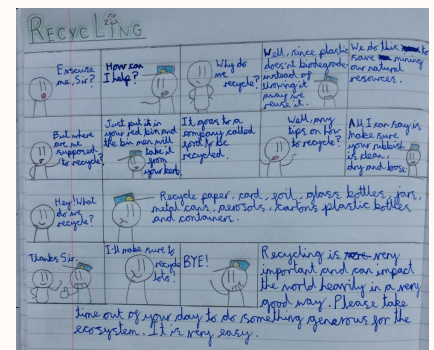 RECYCLING
Excuse
me, Sir?
How can
I help?
Why do
we
recycle?
Well, since plastic
doesn't biodegrade
instead of
throwing it
away we
reuse it.
We do this to
save mining
our natural
resources.
But where
are we
supposed
to recycle?
Just put it in
your red bin and
the bin men will
take it
from
your kerb.
It goes to a
company called
to be
recycled.
Well, any
tips on how
to recycle?
All I can say is
make sure
your rubbish
is clean,
dry and loose.
Hey! What
do we
recycle?
Recycle paper, card, foil, glass bottles, jars,
metal cans, aerosols, cartons plastic bottles
and containers.
Thanks Sir.
I'll make sure to
recycle
lots!
BYE!
Recycling is very
important and can impact
the world heavily in a very
good way. Please take
time out of your day to do something generous for the
ecosystem. It is very easy.